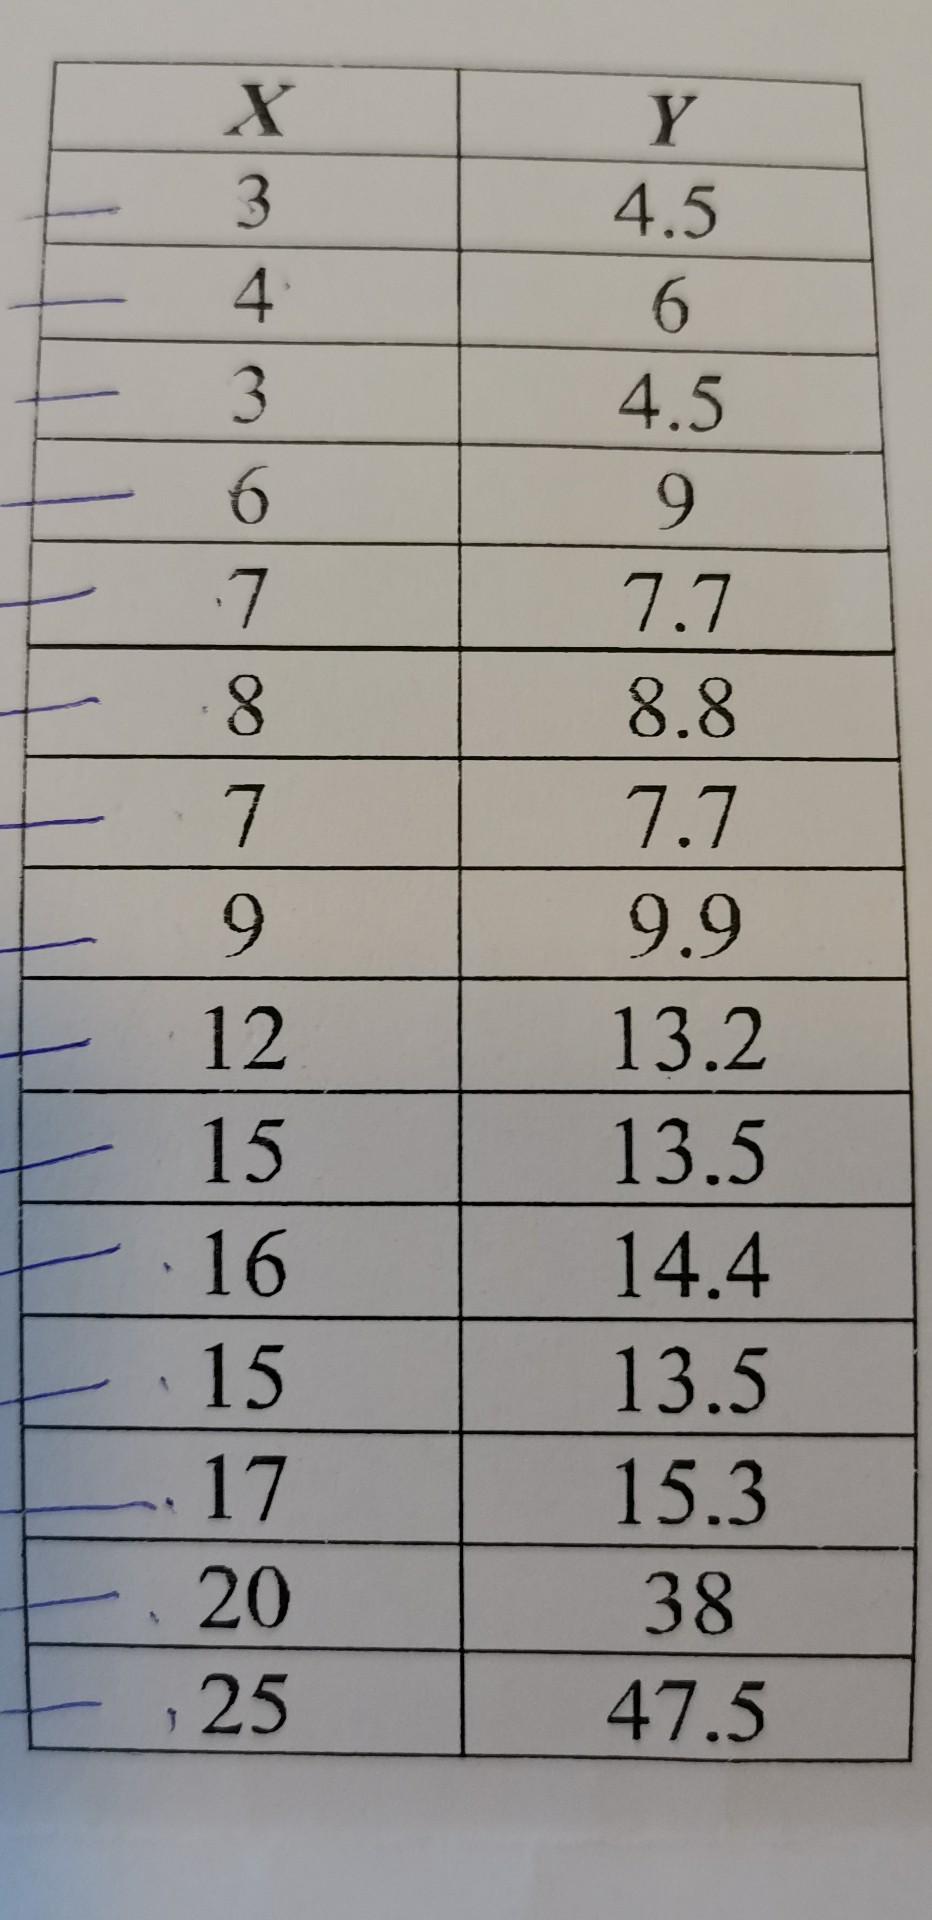 X Y
3 4.5
4 6
3 4.5
6 9
7 7.7
8 8.8
7 7.7
9 9.9
12 13.2
15 13.5
16 14.4
15 13.5
17 15.3
20 38
25 47.5